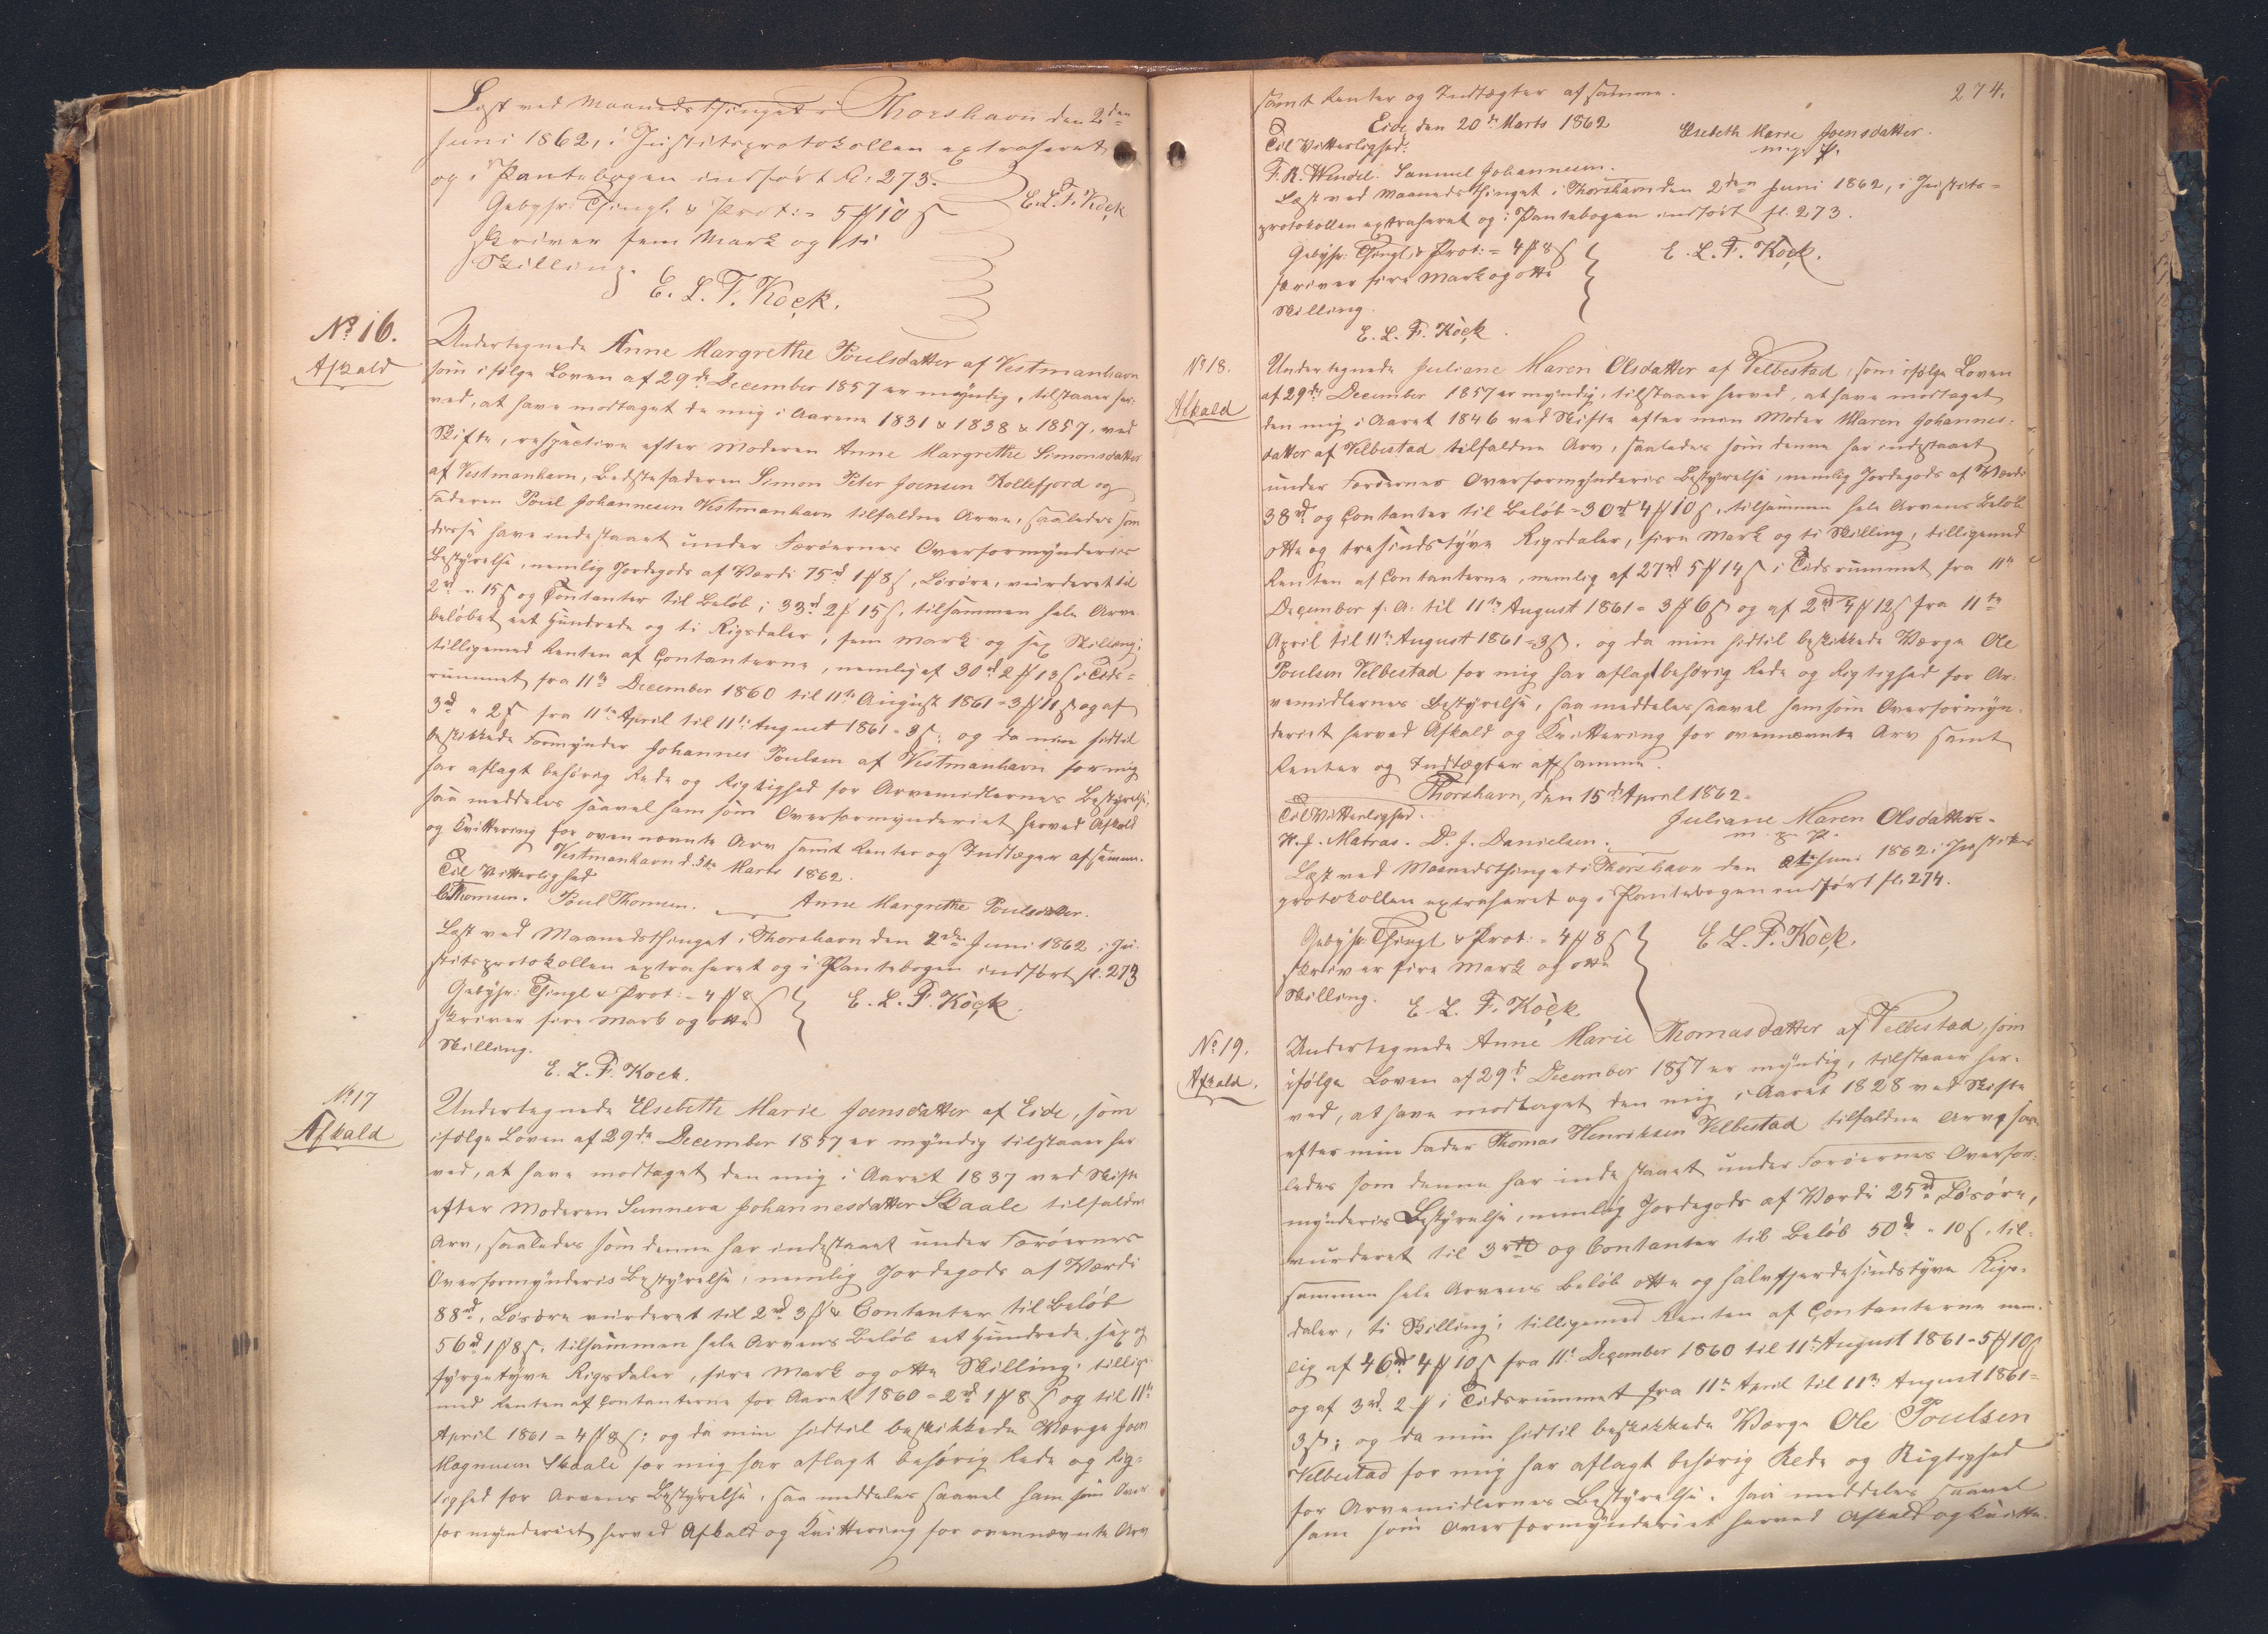 Læst ved Maanedsthinget i Thorshavn den 2den
Juni 1862, i Justitsprotokollen extraheret
og i Pantebogen indført fl. 273.
Gebyhr: Thingl. & Prot: = 5 ₰ 10 ß
skriver fem Mark og ti
Skilling.
E. L. F. Kock
E. L. F. Kock.
No 16.
Afkald
Undertegnede Anne Margrethe Poulsdatter af Vestmanhavn
som ifølge Loven af 29de December 1857 er myndig, tilstaaer her-
ved, at have modtaget de mig i Aarene 1831 & 1838 & 1857, ved
Skifte, respective efter Moderen Anne Margrethe Simonsdatter
af Vestmanhavn, Bedstefaderen Simon Peter Joensen Kollefjord og
Faderen Poul Johannesen Vestmanhavn tilfaldne Arve, saaledes som
disse have indestaaet under Færøernes Overformynderies
Bestyrelse, nemlig Jordegods af Værdi 75rd 1 ₰ 8 ß, Løsøre, vurderet til
2rd " 15 ß og Contanter til Beløb; 33rd 2 ₰ 15 ß, tilsammen hele Arve-
beløbet eet Hundrede og ti Rigsdaler, fem Mark og sex Skilling;
tilligemed Renten af Contanterne, nemlig af 30rd 2 ₰ 13 ß i Tids-
rummet fra 11te December 1860 til 11te August 1861 = 3 ₰ 11 ß og af
3rd " 2 ß fra 11te April til 11te August 1861 = 3 ß; og da min hidtil
beskikkede Formynder Johannes Poulsen af Vestmanhavn for mig
har aflagt behørig Rede og Rigtighed for Arvemidlernes Bestyrelse,
saa meddeles saavel ham som Overformynderiet herved Afkald
og Kvittering for ovennævnte Arv samt Renter og Indtægter af samme.
Vestmanhavn d. 5te Marts 1862.
Til Vitterlighed
Thomsen. Poul Thomsen. Anne Margrethe Poulsdatter.
Læst ved Maanedsthinget i Thorshavn den 2den Juni 1862 i Ju-
stitsprotokollen extraheret og i Pantebogen indført fl. 273
Gebyhr: Thingl & Prot: = 4 ₰ 8 ß
skriver fire Mark og otte
Skilling.
E. L. F. Kock.
E. L. F. Kock.
No 17
Afkald
Undertegnede Elsebeth Marie Joensdatter af Eide, som
ifølge Loven af 29de December 1857 er myndig tilstaaer her-
ved, at have modtaget den mig i Aaret 1837 ved Skifte
efter Moderen Sunneva Johannesdatter Skaale tilfaldne
Arv, saaledes som denne har indestaaet under Færøernes
Overformynderies Bestyrelse, nemlig Jordegods af Værdi
88rd, Løsøre vurderet til 2rd 3 ₰ & Contanter til Beløb
56rd 1 ₰ 8 ß, tilsammen hele Arvens Beløb eet Hundrede, sex og
fyrgetyve Rigsdaler, fire Mark og otte Skilling, tillige-
med Renten af Contanterne for Aaret 1860 = 2rd 1 ₰ 8 ß og til 11te
April 1861 = 4 ₰ 8 ß; og da min hidtil beskikkede Værge Joen
Magnusen Skaale for mig har aflagt behørig Rede og Rig-
tighed for Arvens Bestyrelse, saa meddeles saavel ham som Over-
formynderiet herved Afkald og Kvittering for ovennævnte Arv
274.
samt Renter og Indtægter af samme.
Eide, den 20de Marts 1862
Til Vitterlighed: Elsebeth Marie Joensdatter.
m. p. P.
F. R. Wendel. Samuel Johannesen.
Læst ved Maanedsthinget i Thorshavn den 2den Juni 1862, i Justits-
protokollen extraheret og i Pantebogen indført fl. 273.
Gebyhr: Thingl. & Prot: = 4 ₰ 8 ß
skriver fire Mark og otte
Skilling.
E. L. F. Kock.
E. L. F. Kock.
No 18.
Afkald
Undertegnede Juliane Maren Olsdatter af Velbestad, som ifølge Loven
af 29de December 1857 er myndig, tilstaaer herved, at have modtaget
den mig i Aaret 1846 ved Skifte efter min Moder Maren Johannes-
datter af Velbestad tilfaldne Arv, saaledes som denne har indestaaet
under Færøernes Overformynderies Bestyrelse, nemlig Jordegods af Værdi
38rd og Contanter til Beløb = 30rd 4 ₰ 10 ß, tilsammen hele Arvens Beløb
otte og tresindstyve Rigsdaler, fire Mark og ti Skilling, tilligemed
Renten af Contanterne, nemlig af 27rd 5 ₰ 14 ß i Tidsrummet fra 11te
December f. A. til 11te August 1861 = 3 ₰ 6 ß og af 2rd 4 ₰ 12 ß fra 11te
April til 11te August 1861 = 3 ß. og da min hidtil beskikkede Værge Ole
Poulsen Velbestad for mig har aflagt behørig Rede og Rigtighed for Ar-
vemidlernes Bestyrelse, saa meddeles saavel ham som Overformyn-
deriet herved Afkald og Kvittering for ovennævnte Arv samt
Renter og Indtægter af samme.
Thorshavn, den 15de April 1862.
Til Vitterlighed. Juliane Maren Olsdatter.
m. p. P.
H. J. Matras. D. J. Danielsen.
Læst ved Maanedsthinget i Thorshavn den Juni 1862 i Justits
protokollen extraheret og i Pantebogen indført fl. 274.
Gebyhr: Thingl & Prot: = 4 ₰ 8 ß
skriver fire Mark og otte
Skilling.
E. L. F. Kock.
E. L. F. Kock.
No 19.
Afkald.
Undertegnede Anne Marie Thomasdatter af Velbestad, som
ifølge Loven af 29de December 1857 er myndig, tilstaaer her-
ved, at have modtaget den mig i Aaret 1828 ved Skifte
efter min Fader Thomas Henriksen Velbestad tilfaldne Arv, saa-
ledes som denne har indestaaet under Færøernes Overfor-
mynderies Bestyrelse, nemlig Jordegods af Værdi 25rd, Løsøre,
vurderet til 3rd og Contanter til Beløb 50rd " 10 ß, til-
sammen hele Arvens Beløb otte og halvfjerdesindstyve Rigs-
daler, ti Skilling; tilligemed Renten af Contanterne nem-
lig af 46rd 4 ₰ 10 ß fra 11te December 1860 til 11te August 1861 = 5 ₰ 10 ß
og af 3rd. 2 ₰ i Tidsrummet fra 11te April til 11te August 1861 =
3 ß; og da min hidtil beskikkede Værge Ole Poulsen
Velbestad for mig har aflagt behørig Rede og Rigtighed
for Arvemidlernes Bestyrelse, saa meddeles saavel
ham som Overformynderiet herved Afkald og Kvitte-